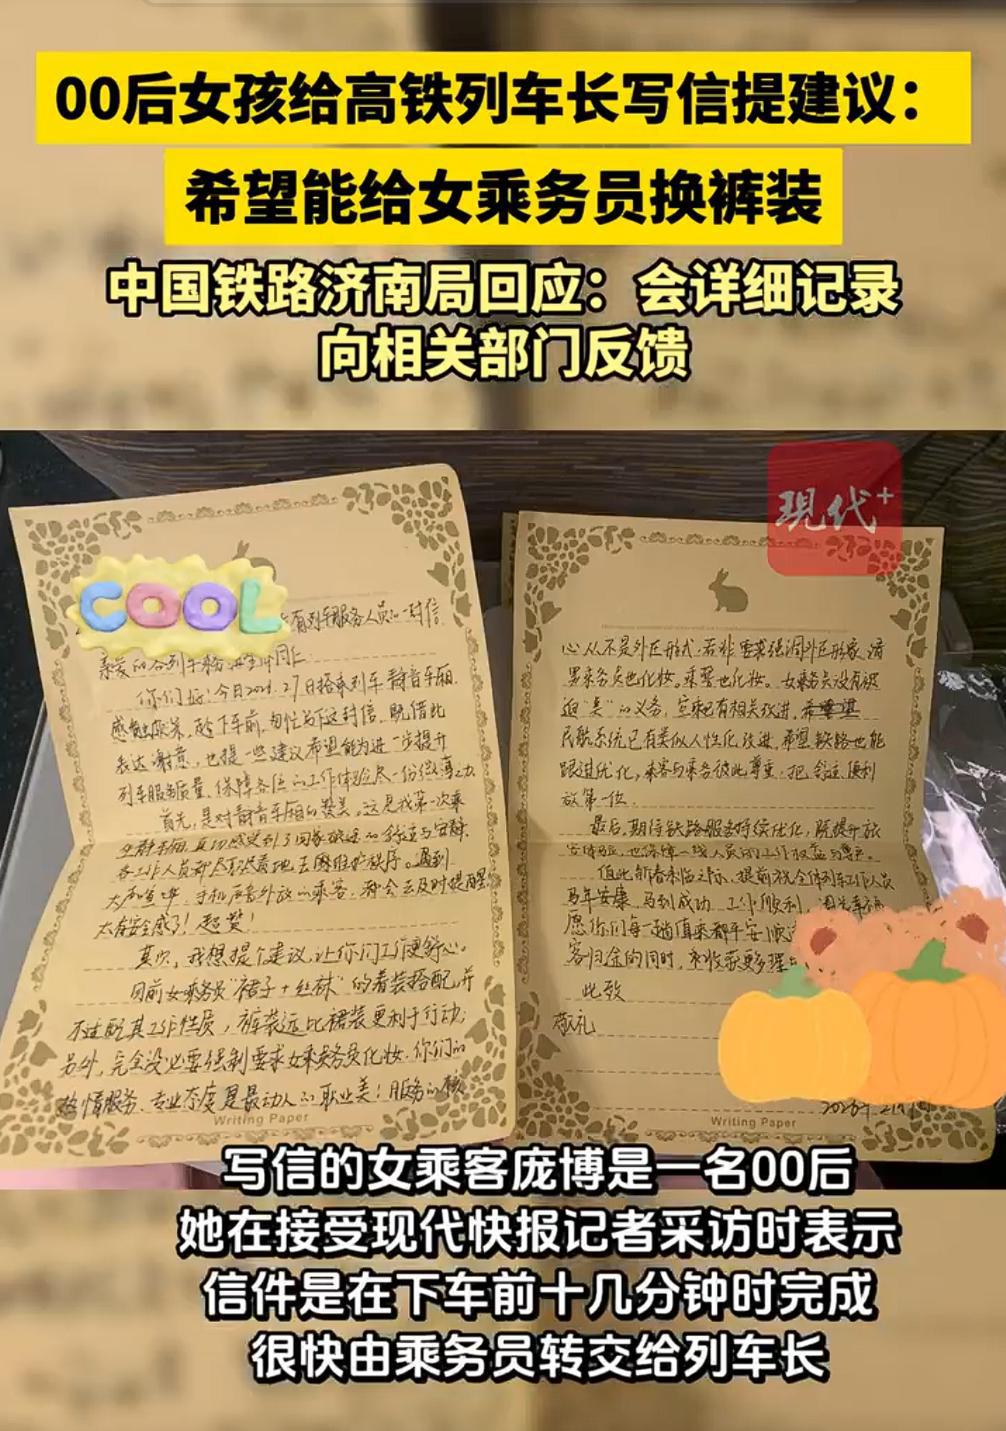 00后女孩给高铁列车长写信提建议：
希望能给女乘务员换裤装
中国铁路济南局回应：会详细记录
向相关部门反馈
現代+
COOL
有列车服务人员的一封信
亲爱的各列车
你们好！今日 27日搭乘列车静音车厢
感触颇深，趁下车前，匆忙写下这封信，既借此
表达谢意，也提一些建议希望能为进一步提升
列车服务质量、保障各位的工作体验尽一份微薄之力
首先，是对静音车厢的赞美。这是我第一次乘
坐静音车厢，真切感受到了回家旅途的舒适与安静
各工作人员都尽职尽责地去困维护秩序。遇到
大声喧哗、手机声音外放的乘客，都会去及时提醒，
太有安全感了！超赞！
其次，我想提个建议，让你们工作更舒心。
目前女乘务员“裙子+丝袜”的着装搭配，并
不适配其工作性质，裤装远比裙装更利于行动；
另外，完全没必要强制要求女乘务员化妆，你们的
热情服务、专业态度是最动人的职业美！服务的核
Writing Paper
心从不是外在形式，若非要强调外在形象，请
男乘务员也化妆。乘警也化妆。女乘务员没有被
迫“美”的义务，空乘已有相关改进，
民航系统已有类似人性化改进，希望铁路也能
跟进优化，乘客与乘务彼此尊重，把舒适、便利
放第一位。
最后，期待铁路服务持续优化，既提升旅
客体验，也保障一线人员的工作权益与尊严。
值此新春来临之际，提前祝全体列车工作人员
马年安康，马到成功，工作顺利，
愿你们每一趟值乘都平安顺
客归途的同时，也收获更多理
此致
敬礼
2026年2月
Writing Paper
写信的女乘客庞博是一名00后
她在接受现代快报记者采访时表示
信件是在下车前十几分钟时完成
很快由乘务员转交给列车长